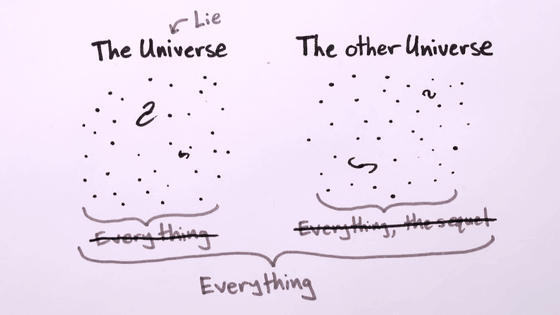 Lie
The Universe
The other Universe
Everything
Everything, the sequel
Everything